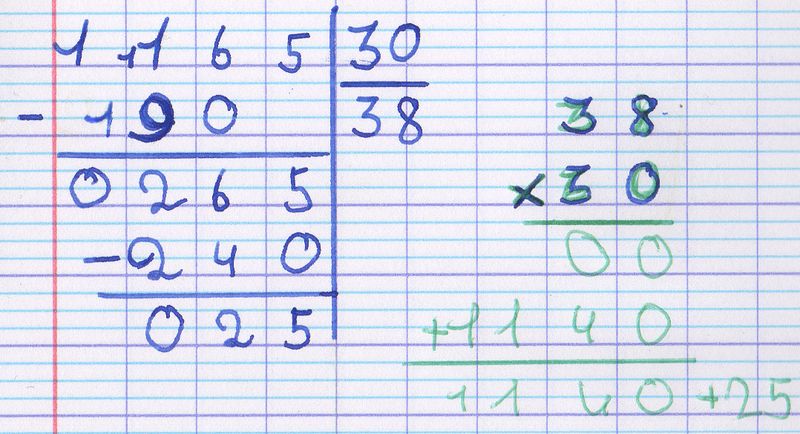 1 11 6 5 | 30
- 1 9 0 | 38
0 2 6 5
- 2 4 0
0 2 5
3 8
x 3 0
0 0
+ 1 1 4 0
1 1 4 0 + 25